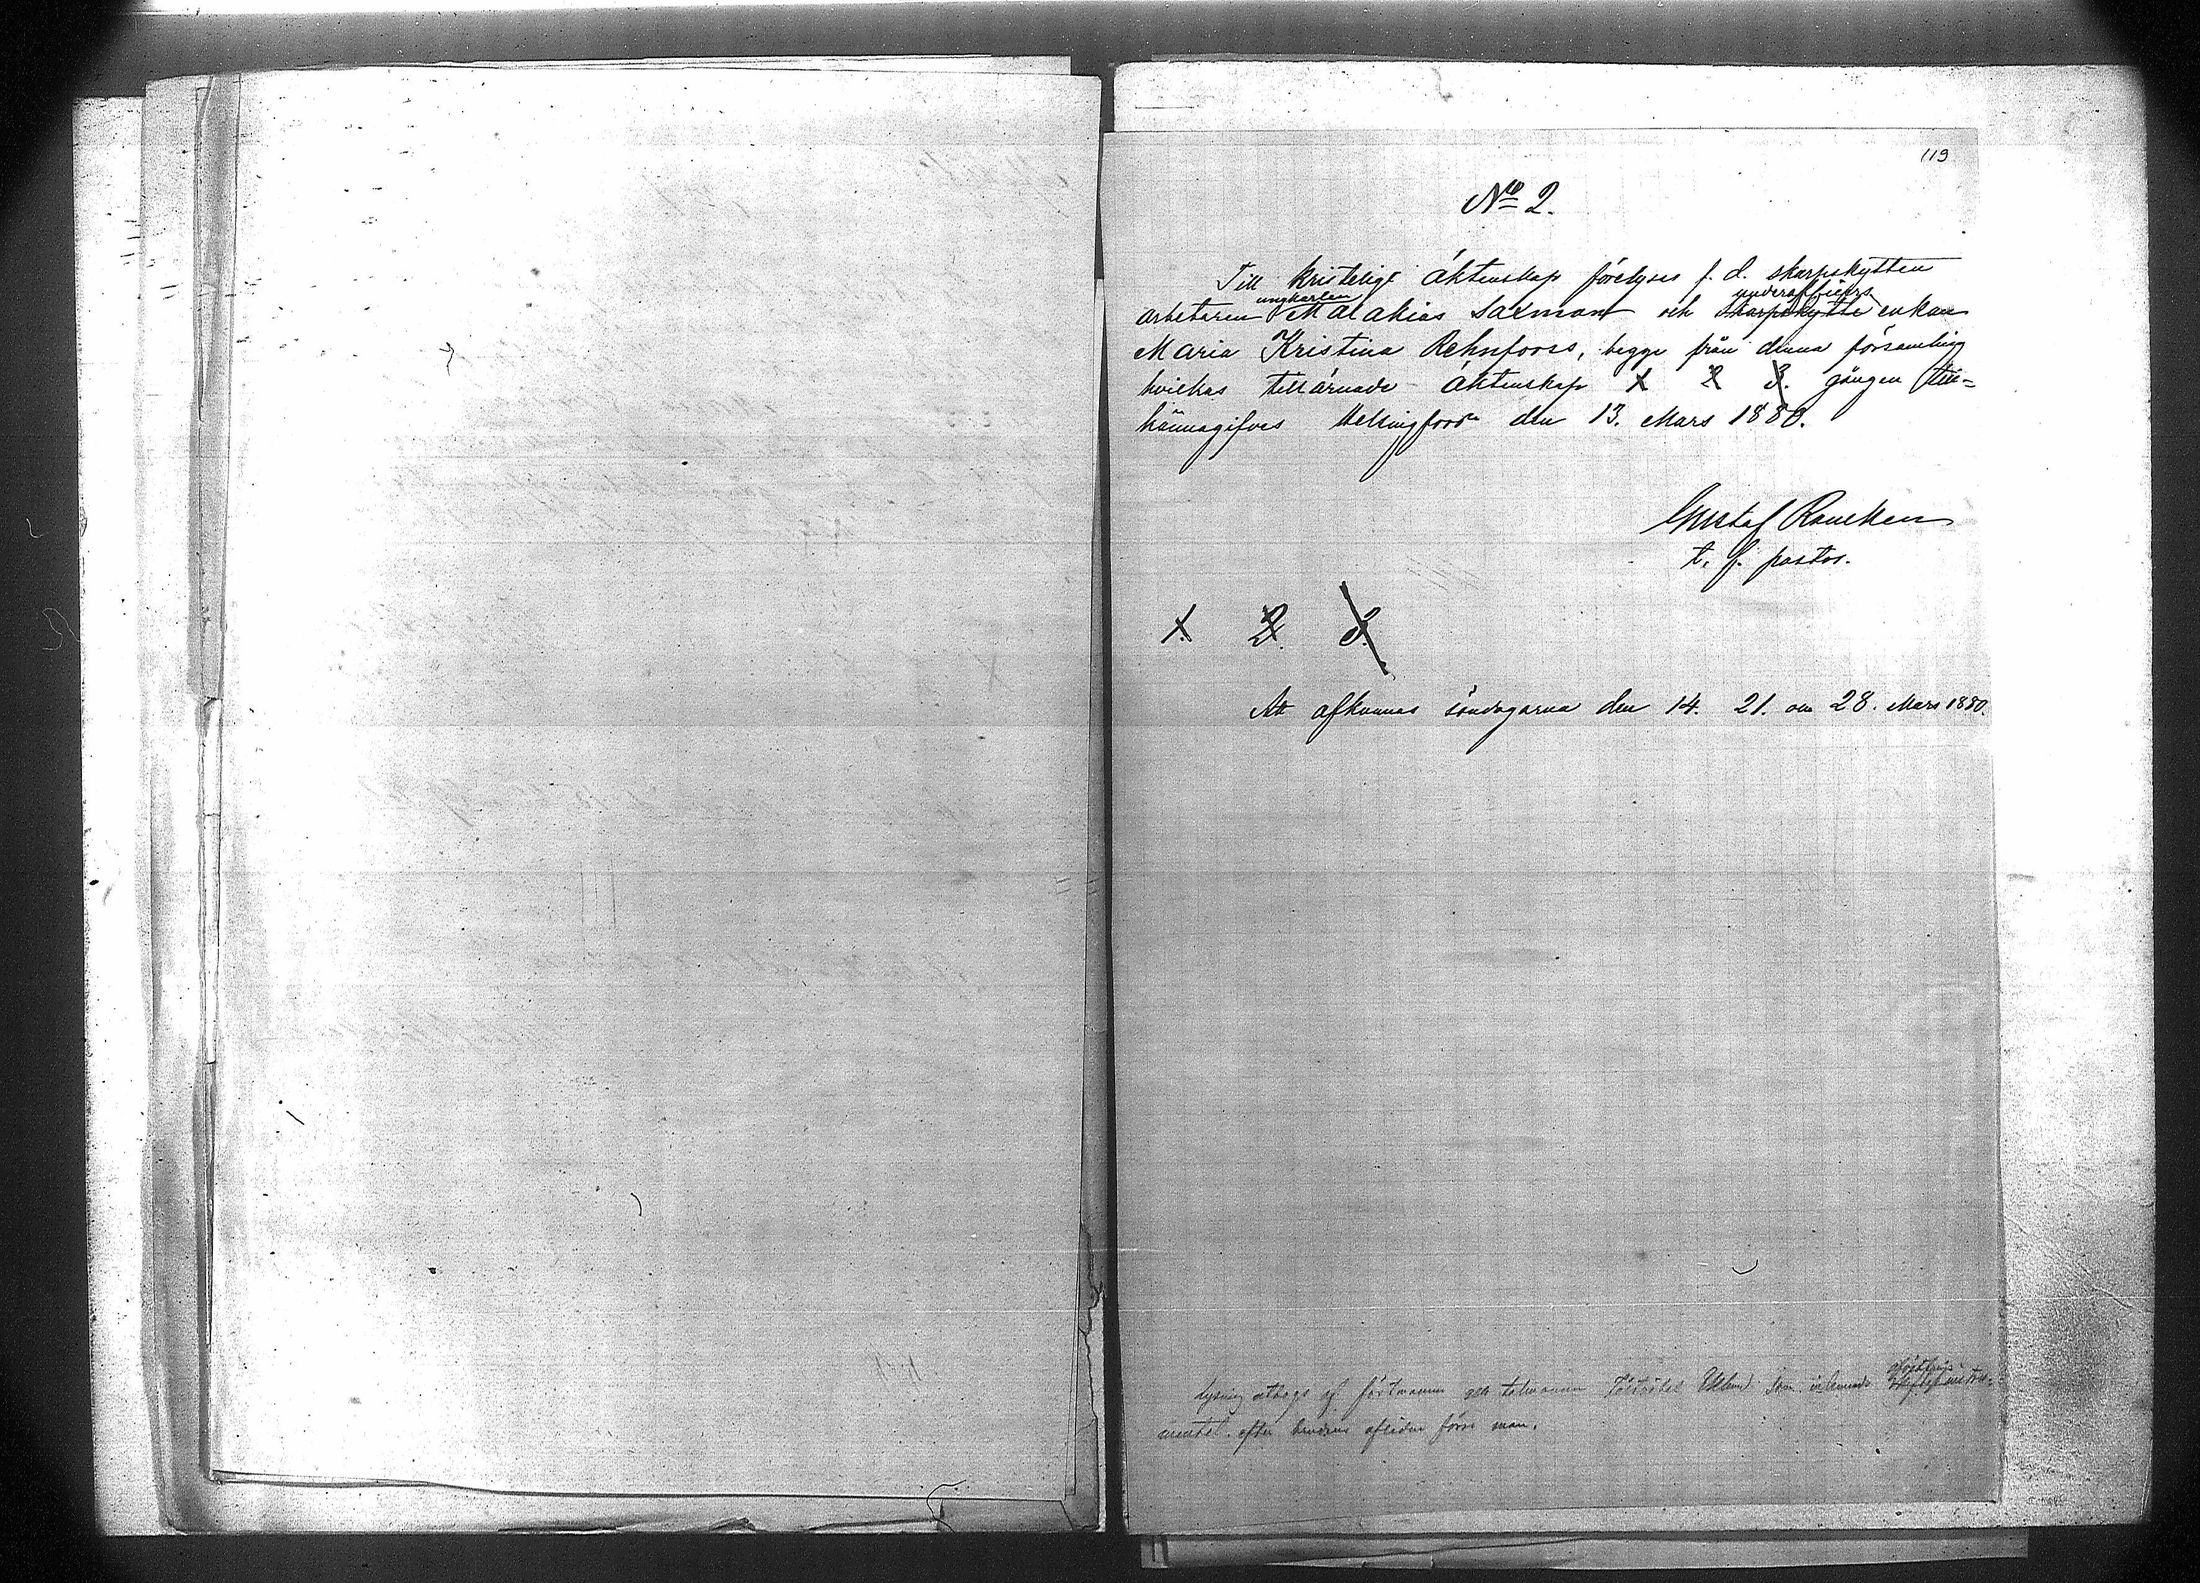 119
No 2.
Till kristeligt äktenskap förelyses f. d. skarpskytten
ungkarlen underofficers
arbetaren Malakias Saxman och skarpskytte enkan
Maria Kristina Rehnfors, begge från denna församling
hvilkas tillärnade äktenskap 1 2 3. gången till-
kännagifves Helsingfors den 13. Mars 1880.
Gustaf Rancken
t. f. pastor.
1. 2. 3.
Att afkunnas söndagarna den 14. 21. och 28. Mars 1880.
lysning uttogs af förtroman Eklund som inlemnade
efter brudens aflidne förre man.